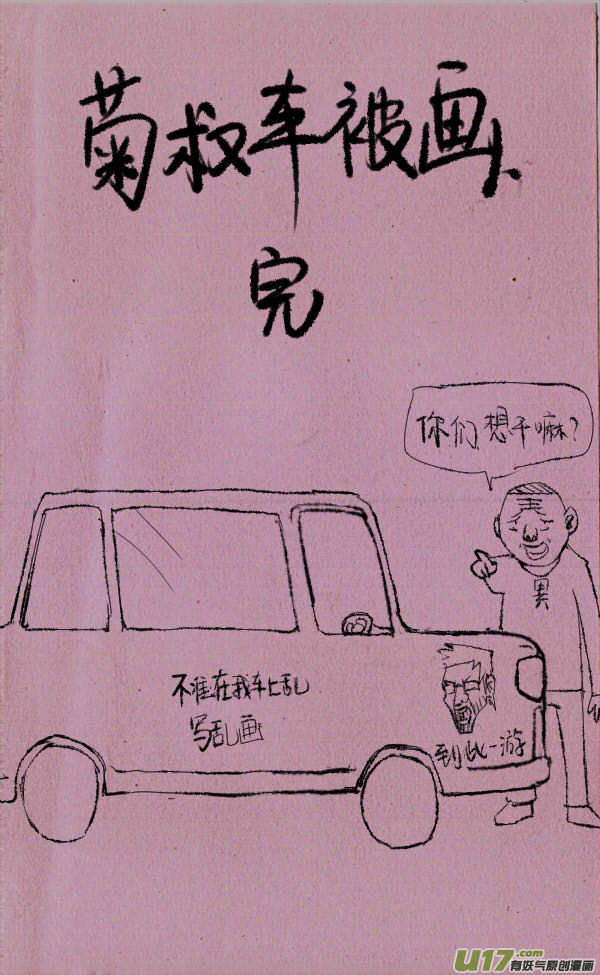 菊叔车被画、
完
你们想干嘛?
不准在我车上乱
写乱画
到此一游
U17.com
有妖气原创漫画